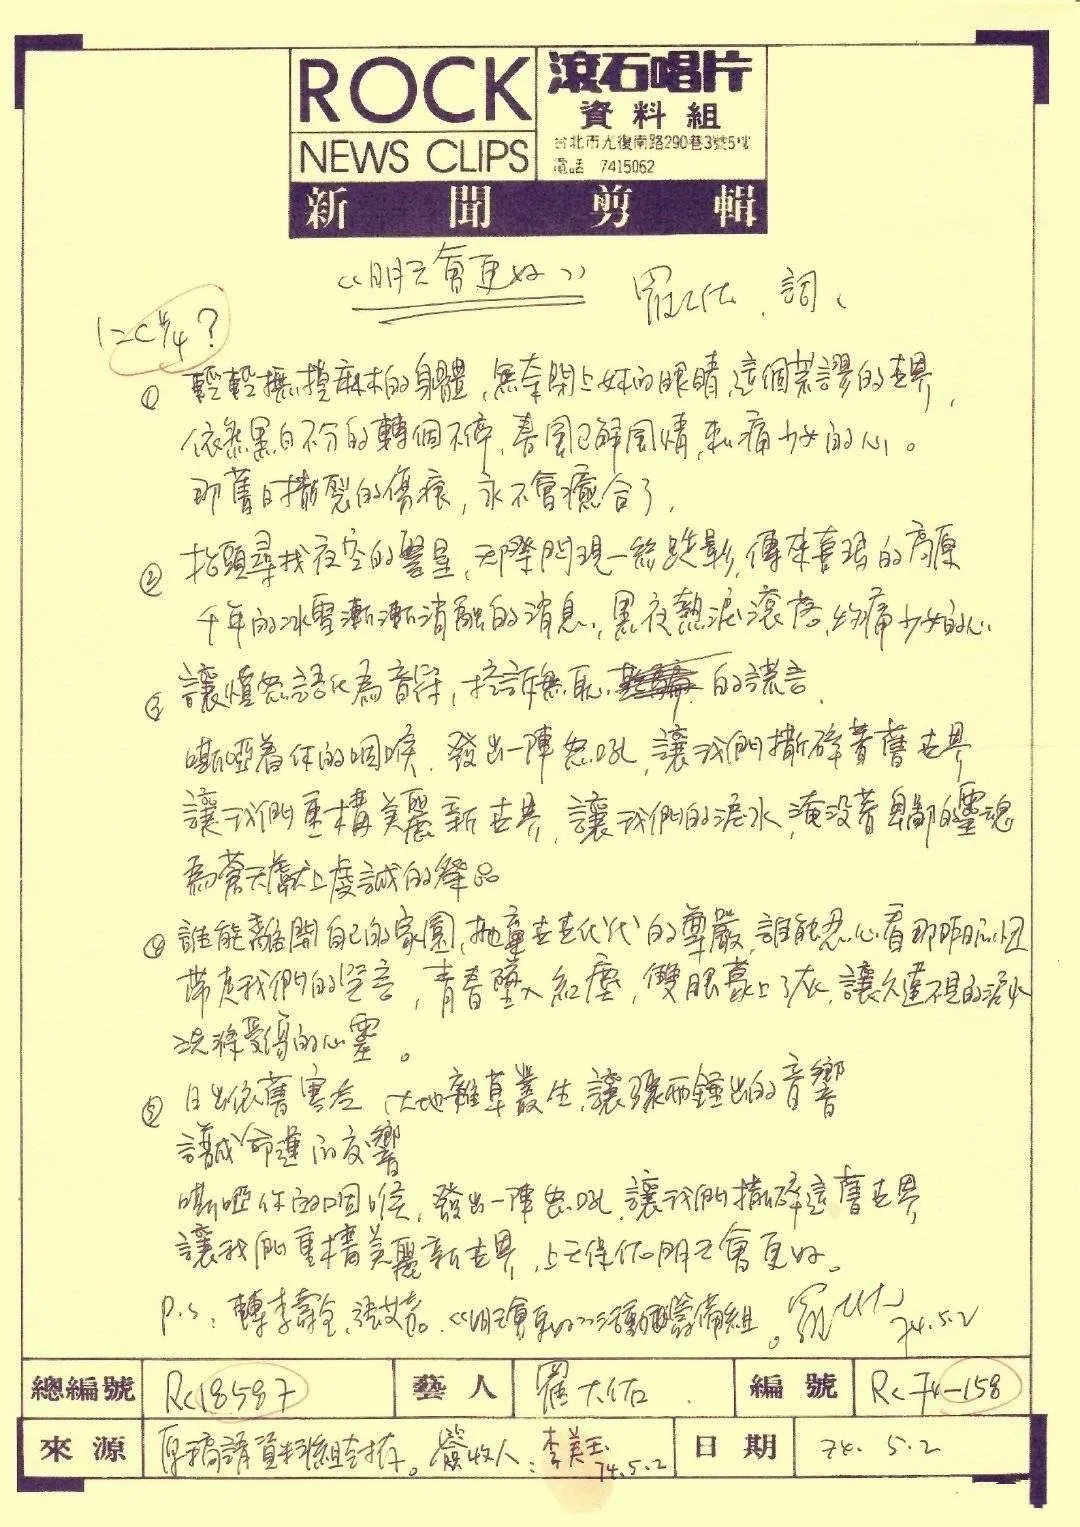 ROCK
NEWS CLIPS
滾石唱片
資料組
台北市光復南路290巷3號5樓
電話 7415062
新聞剪輯
《明天會更好》 羅大佑 詞
① 輕輕撫摸麻木的身體,無奈閉上妳的眼睛,這個荒謬的世界,
依然黑白不分的轉個不停,春風已解風情,刺痛少女的心。
那舊日撕裂的傷痕,永不會癒合了,
② 抬頭尋找夜空的繁星,天際閃現一絲跌影,傳來喜瑪的高原
千年的冰雪漸漸消融的消息,黑夜熱淚滾落,灼痛少女的心
③ 讓憤怒語化為音符,控訴無恥 的謊言,
嘶啞着你的咽喉,發出一陣怒吼,讓我們撕碎着舊世界
讓我們重構美麗新世界,讓我們的淚水,淹沒着卑鄙的靈魂
為蒼天獻上虔誠的祭品
④ 誰能離開自己的家園,拋棄世世代代的尊嚴,誰能忍心看那昨日的
帶走我們的 ,青春墮入紅塵,雙眼蒙上了灰,讓久違不見的淚水
洗滌受傷的心靈。
⑤ 日出依舊寒冷,大地雜草叢生,讓 鐘出的音響
譜成命運的交響
嘶啞你的咽喉,發出一陣怒吼,讓我們撕碎這舊世界
讓我們重構美麗新世界,上天保佑明天會更好。
P.S:轉李壽全,張艾嘉。《明天會更好》活動籌備組。羅大佑 74.5.2
總編號 Rc18587 藝人 羅大佑 編號 Rc74-158
來源 原稿請資料組封存。簽收人:李美玉 74.5.2 日期 74.5.2